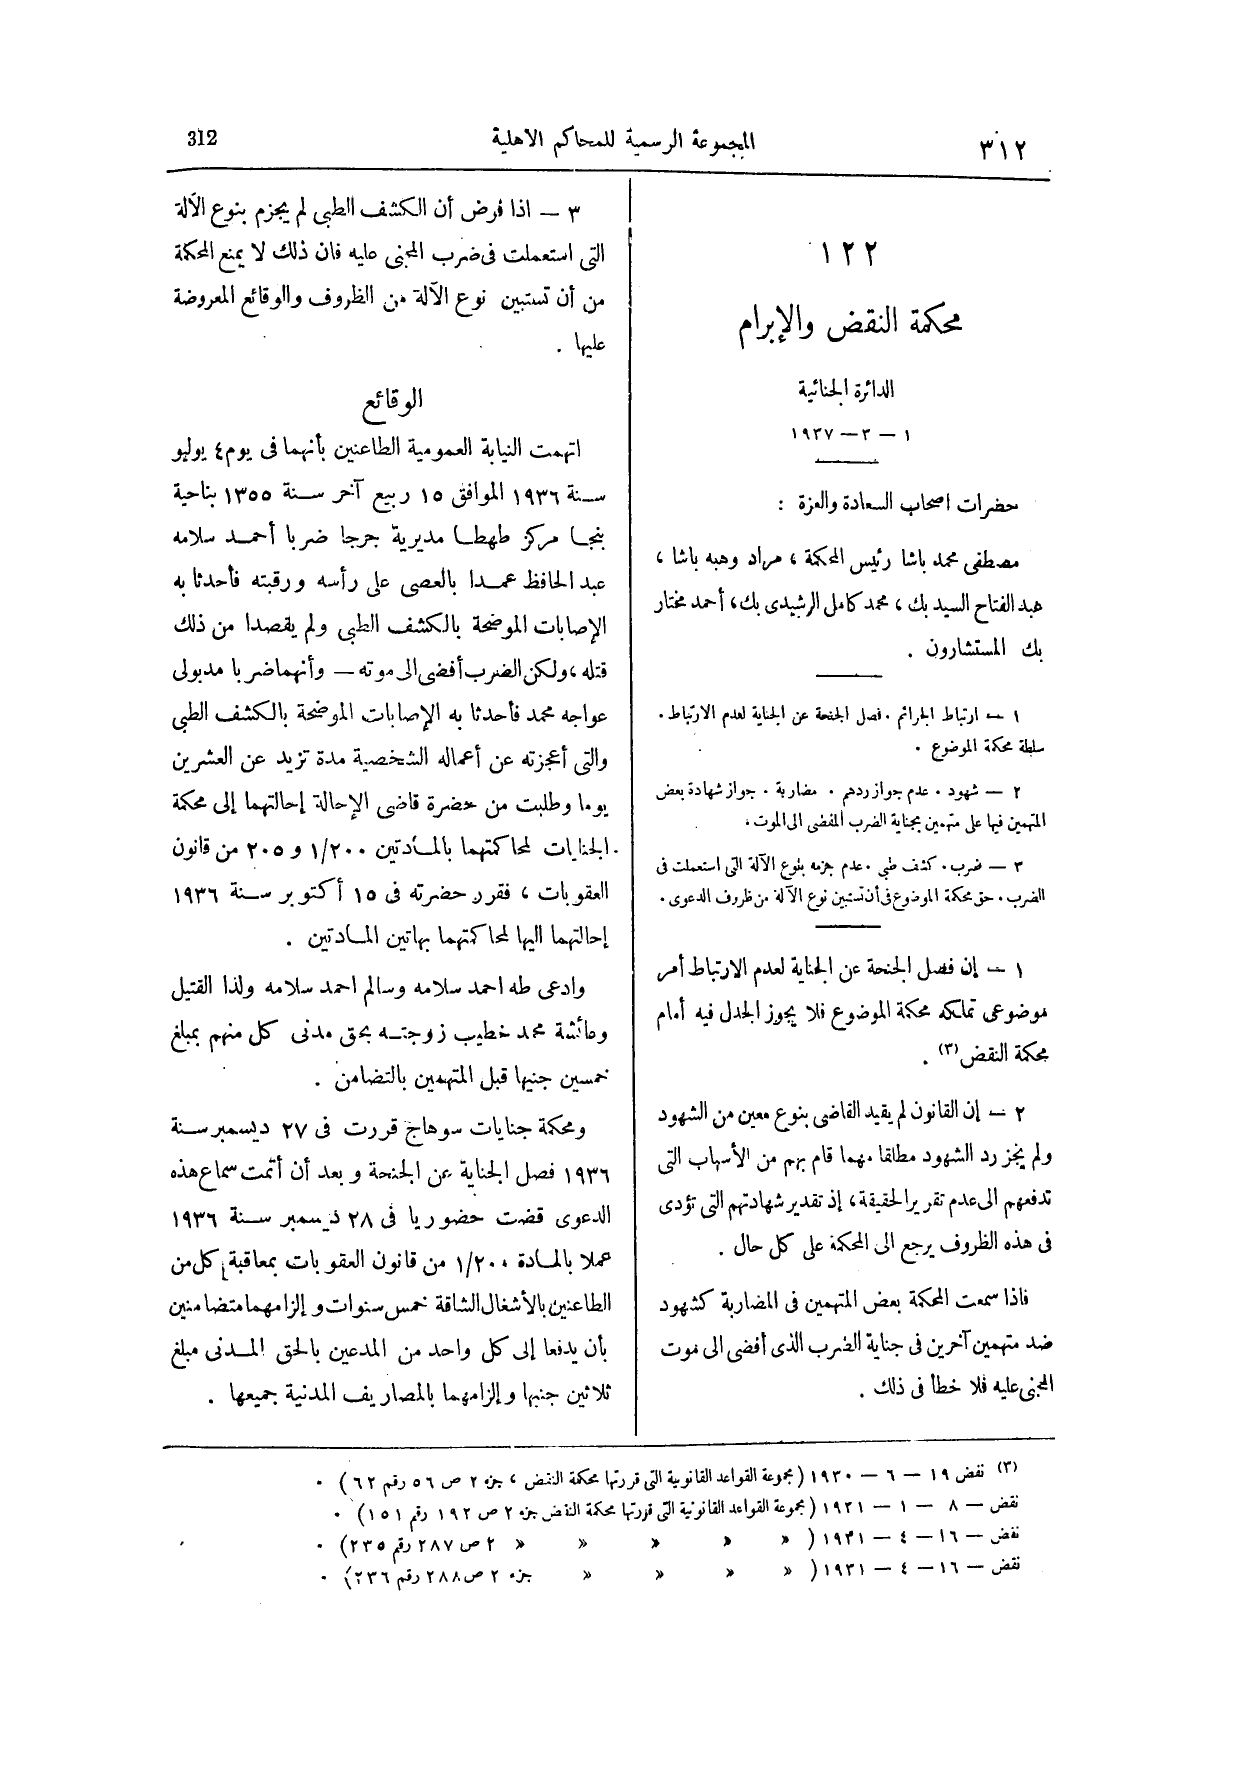 ٣١٢
المجموعة الرسمية للمحاكم الاهلية
312
١٢٢
محكمة النقض والإبرام
الدائرة الجنائية
١ – ٣ – ١٩٣٧
حضرات اصحاب السعادة والعزة :
مصطفى محمد باشا رئيس المحكمة ، مراد وهبه باشا ،
عبد الفتاح السيد بك ، محمد كامل الرشيدى بك، أحمد مختار
بك المستشارون .
١ – ارتباط الجرائم . فصل الجنحة عن الجناية لعدم الارتباط .
سلطة محكمة الموضوع .
٢ – شهود . عدم جواز ردهم . مضاربة . جواز شهادة بعض
المتهمين فيها على متهمين بجناية الضرب المفضى الى الموت.
٣ – ضرب. كشف طبى . عدم جزمه بنوع الآلة التى استعملت فى
الضرب . حق محكمة الموضوع فى أن تستبين نوع الآلة من ظروف الدعوى .
١ – إن فصل الجنحة عن الجناية لعدم الارتباط أمر
موضوعى تملكه محكمة الموضوع فلا يجوز الجدل فيه أمام
محكمة النقض (٣) .
٢ – إن القانون لم يقيد القاضى بنوع معين من الشهود
ولم يجز رد الشهود مطلقا مهما قام بهم من الأسباب التى
تدفعهم الى عدم تقرير الحقيقة ، إذ تقدير شهادتهم التى تؤدى
فى هذه الظروف يرجع الى المحكمة على كل حال .
فاذا سمعت المحكمة بعض المتهمين فى المضاربة كشهود
ضد متهمين آخرين فى جناية الضرب الذى أفضى الى موت
المجنى عليه فلا خطأ فى ذلك .
٣ – اذا فرض أن الكشف الطبى لم يجزم بنوع الآلة
التى استعملت فى ضرب المجنى عليه فان ذلك لا يمنع المحكمة
من أن تستبين نوع الآلة من الظروف والوقائع المعروضة
عليها .
الوقائع
اتهمت النيابة العمومية الطاعنين بأنهما فى يوم ٤ يوليو
سنة ١٩٣٦ الموافق ١٥ ربيع آخر سنة ١٣٥٥ بناحية
بنجا مركز طهطا مديرية جرجا ضربا أحمد سلامه
عبد الحافظ عمدا بالعصى على رأسه ورقبته فأحدثا به
الإصابات الموضحة بالكشف الطبى ولم يقصدا من ذلك
قتله ، ولكن الضرب أفضى الى موته – وأنهما ضربا مدبولى
عواجه محمد فأحدثا به الإصابات الموضحة بالكشف الطبى
والتى أعجزته عن أعماله الشخصية مدة تزيد عن العشرين
يوما وطلبت من حضرة قاضى الإحالة إحالتهما إلى محكمة
الجنايات لمحاكمتهما بالمادتين ١/٢٠٠ و ٢٠٥ من قانون
العقوبات ، فقرر حضرته فى ١٥ أكتوبر سنة ١٩٣٦
إحالتهما اليها لمحاكمتهما بهاتين المادتين .
وادعى طه احمد سلامه وسالم احمد سلامه ولدا القتيل
وعائشة محمد خطيب زوجته بحق مدنى كل منهم بمبلغ
خمسين جنيها قبل المتهمين بالتضامن .
ومحكمة جنايات سوهاج قررت فى ٢٧ ديسمبر سنة
١٩٣٦ فصل الجناية عن الجنحة وبعد أن أتمت سماع هذه
الدعوى قضت حضوريا فى ٢٨ ديسمبر سنة ١٩٣٦
عملا بالمادة ١/٢٠٠ من قانون العقوبات بمعاقبة كل من
الطاعنين بالأشغال الشاقة خمس سنوات وإلزامهما متضامنين
بأن يدفعا إلى كل واحد من المدعين بالحق المدنى مبلغ
ثلاثين جنيها وإلزامهما بالمصاريف المدنية جميعها .
(٣) نقض ١٩ – ٦ – ١٩٣٠ (مجموعة القواعد القانونية التى قررتها محكمة النقض ، جزء ٢ ص ٥٦ رقم ٦٢) .
نقض – ٨ – ١ – ١٩٣١ (مجموعة القواعد القانونية التى قررتها محكمة النقض جزء ٢ ص ١٩٢ رقم ١٥١) .
نقض – ١٦ – ٤ – ١٩٣١ ( » » » » » ٢ ص ٢٨٧ رقم ٢٣٥) .
نقض – ١٦ – ٤ – ١٩٣١ ( » » » » جزء ٢ ص ٢٨٨ رقم ٢٣٦) .